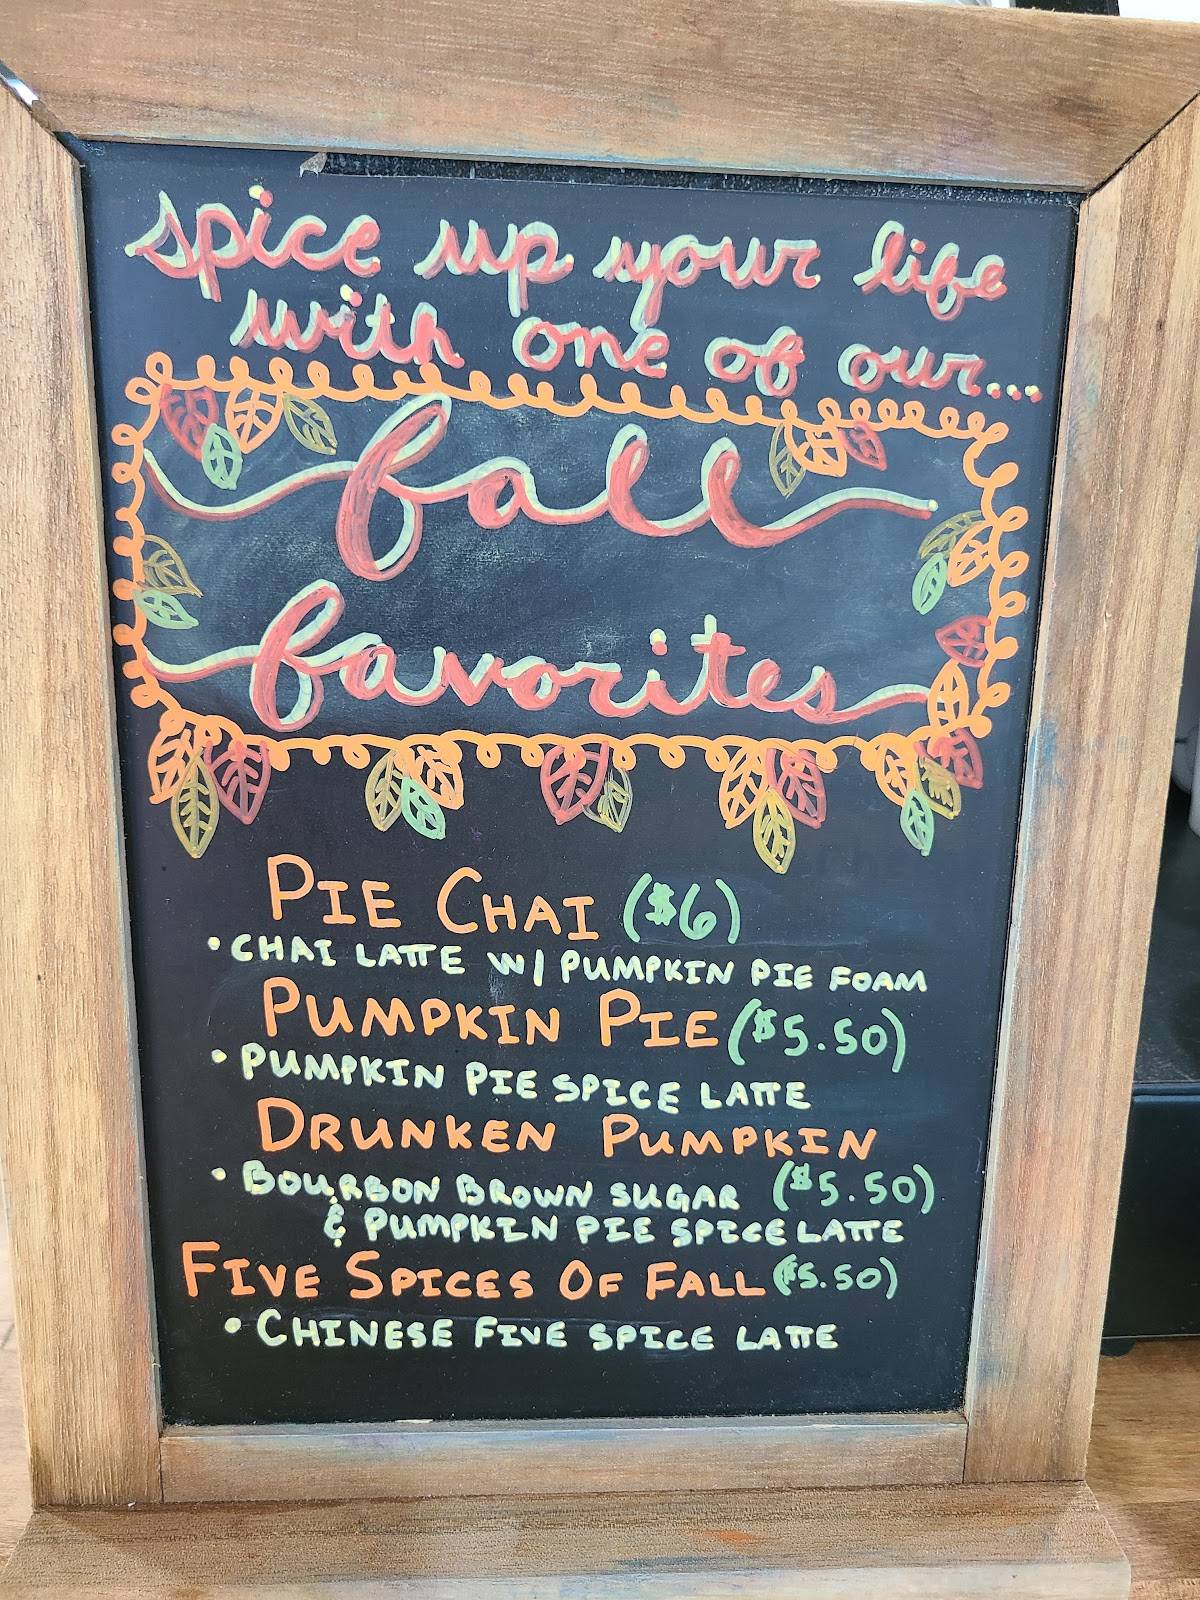 spice up your life
with one of our....
fall
favorites
PIE CHAI ($6)
• CHAI LATTE W/ PUMPKIN PIE FOAM
PUMPKIN PIE ($5.50)
• PUMPKIN PIE SPICE LATTE
DRUNKEN PUMPKIN
• BOURBON BROWN SUGAR ($5.50)
& PUMPKIN PIE SPICE LATTE
FIVE SPICES OF FALL ($5.50)
• CHINESE FIVE SPICE LATTE